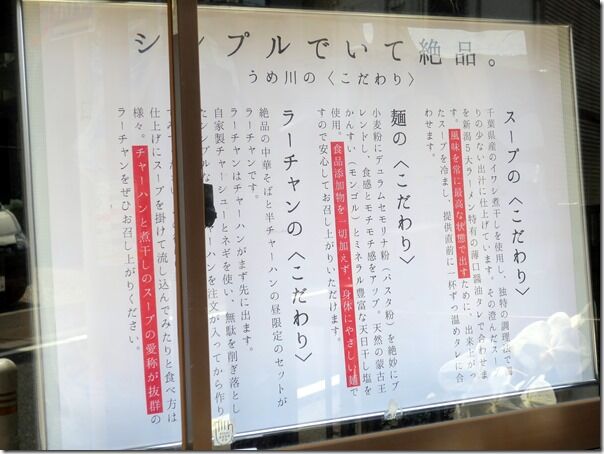 シンプルでいて絶品。
うめ川の〈こだわり〉
スープの〈こだわり〉
千葉県産のイワシ煮干しを使用し、独特の調理法で
りの少ない出汁に仕上げています。その澄んだスー
を新潟5大ラーメン特有の薄口醤油タレで合わせま
す。風味を常に最高な状態で出すために、出来上がっ
たスープを冷まし、提供直前に一杯ずつ温めタレに合
わせます。
麺の〈こだわり〉
小麦粉にデュラムセモリナ粉（パスタ粉）を絶妙にブ
レンドし、食感とモチモチ感をアップ。天然の蒙古王
かんすい（モンゴル）とミネラル豊富な天日干し塩を
使用。食品添加物を一切加えず、身体にやさしい麺で
すので安心してお召し上がりいただけます。
ラーチャンの〈こだわり〉
絶品の中華そばと半チャーハンの昼限定のセットが
ラーチャンです。
ラーチャンはチャーハンがまず先に出ます。
自家製チャーシューとネギを使い、無駄を削ぎ落とし
たシンプルな
ーハンを注文が入ってから作り
仕上げにスープを掛けて流し込んでみたりと食べ方は
様々。チャーハンと煮干しのスープの愛称が抜群の
ラーチャンをぜひお召し上がりください。